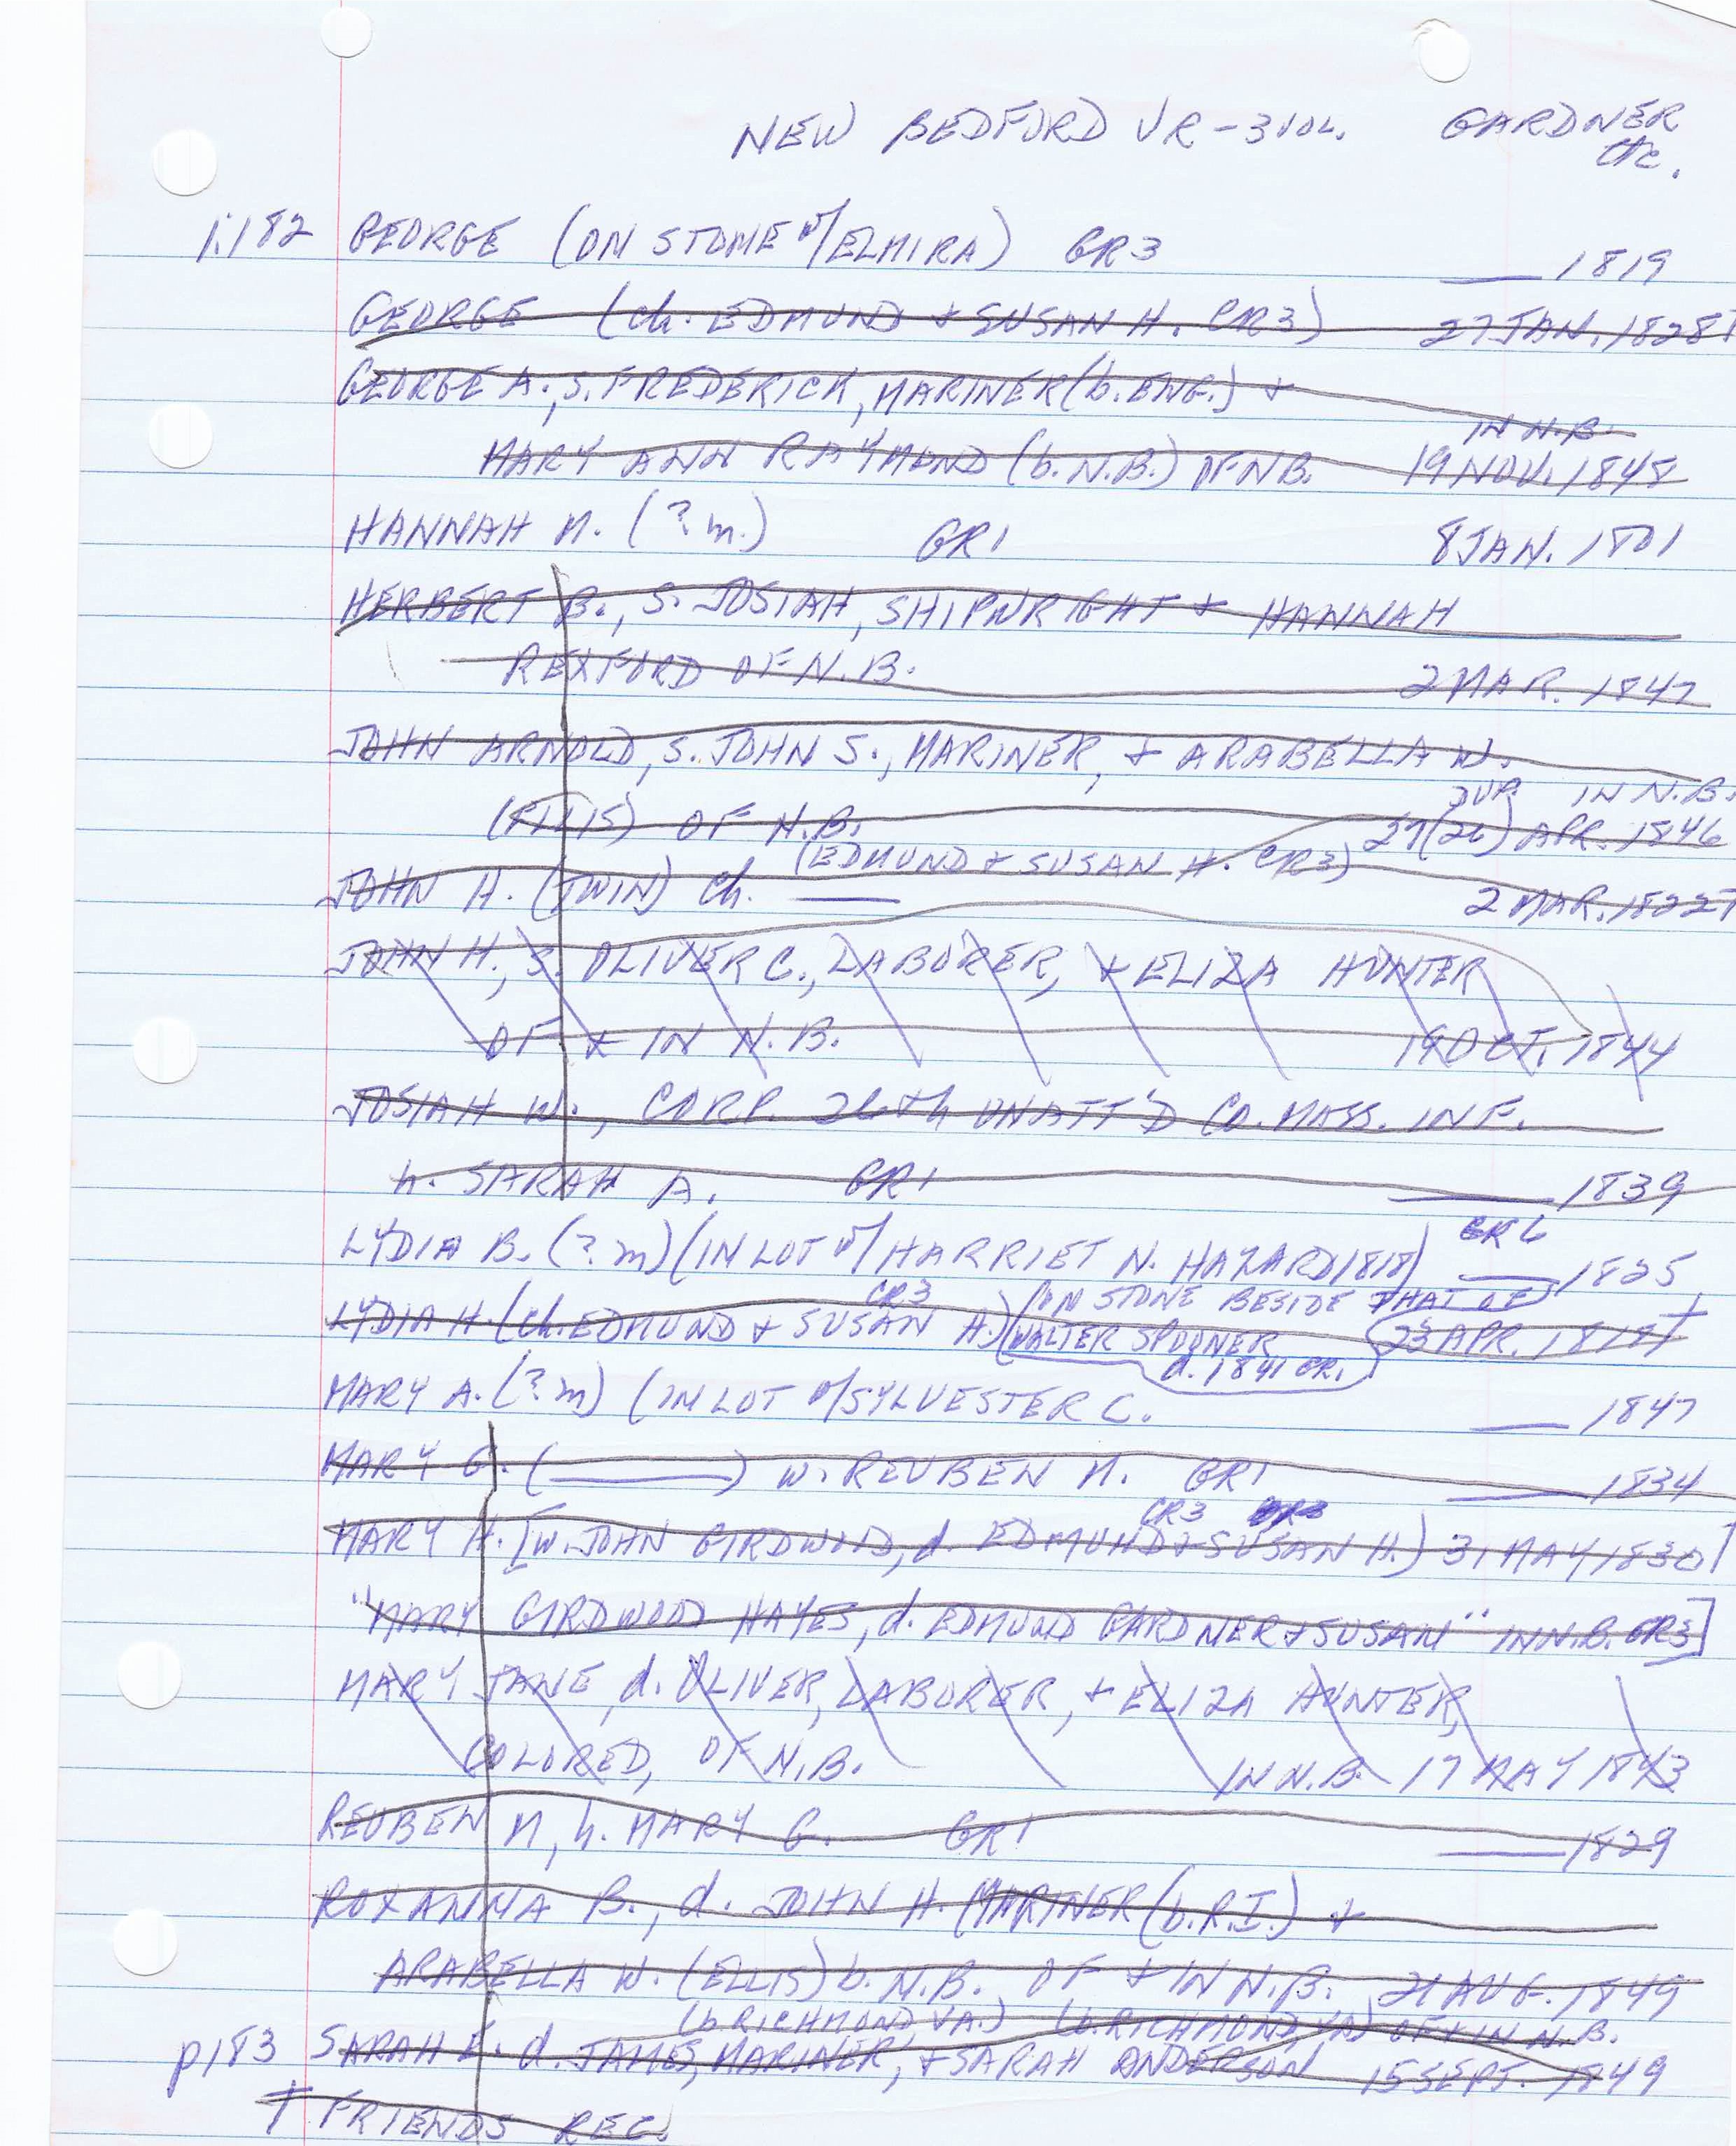 NEW BEDFORD VR-3 VOL. GARDNER
etc.
1:182 GEORGE (ON STONE w/ELMIRA) GR3 ___ 1819
GEORGE (ch. EDMUND + SUSAN H. CR3) 27 JAN. 1828†
GEORGE A., S. FREDERICK, MARINER (b. ENG.) +
IN N.B.
MARY ANN RAYMOND (b. N.B.) OF NB. 19 NOV. 1848
HANNAH M. (? m.) GR1 8 JAN. 1801
HERBERT B., S. JOSIAH, SHIPWRIGHT + HANNAH
REXFORD OF N.B. 2 MAR. 1847
JOHN ARNOLD, S. JOHN S., MARINER, + ARABELLA W.
DUP. IN N.B.
(ELLIS) OF N.B. 27(26) APR. 1846
(EDMUND + SUSAN H. CR3)
JOHN H. (TWIN) ch. ___ 2 MAR. 1822†
JOHN H., S. OLIVER C., LABORER, + ELIZA HUNTER
OF + IN N.B. 19 OCT. 1844
JOSIAH W., CORP. 26th UNATT'D CO. MASS. INF.
h. SARAH A. GR1 ___ 1839
LYDIA B. (? m) (IN LOT w/HARRIET N. HAZARD 1818) GR6 ___ 1825
CR3 (ON STONE BESIDE THAT OF
LYDIA H. (ch. EDMUND + SUSAN H.) WALTER SPOONER 23 APR. 1818†
d. 1841 GR1
MARY A. (? m) (IN LOT w/SYLVESTER C. ___ 1847
MARY G. (___) w. REUBEN M. GR1 ___ 1834
CR3
MARY H. [W. JOHN GIRDWOOD, d. EDMUND + SUSAN H.) 31 MAY 1830†
"MARY GIRDWOOD HAYES, d. EDMUND GARDNER + SUSAN" IN N.B. GR3]
MARY JANE, d. OLIVER, LABORER, + ELIZA HUNTER,
COLORED, OF N.B. IN N.B. 17 MAY 1843
REUBEN M, h. MARY G. GR1 ___ 1829
ROXANNA B., d. JOHN H. MARINER (b. R.I.) +
ARABELLA W. (ELLIS) b. N.B. OF + IN N.B. 21 AUG. 1849
(b. RICHMOND, VA.) (b. RICHMOND, VA) OF + IN N.B.
p183 SARAH E. d. JAMES, MARINER, + SARAH ANDERSON 15 SEPT. 1849
† FRIENDS REC.